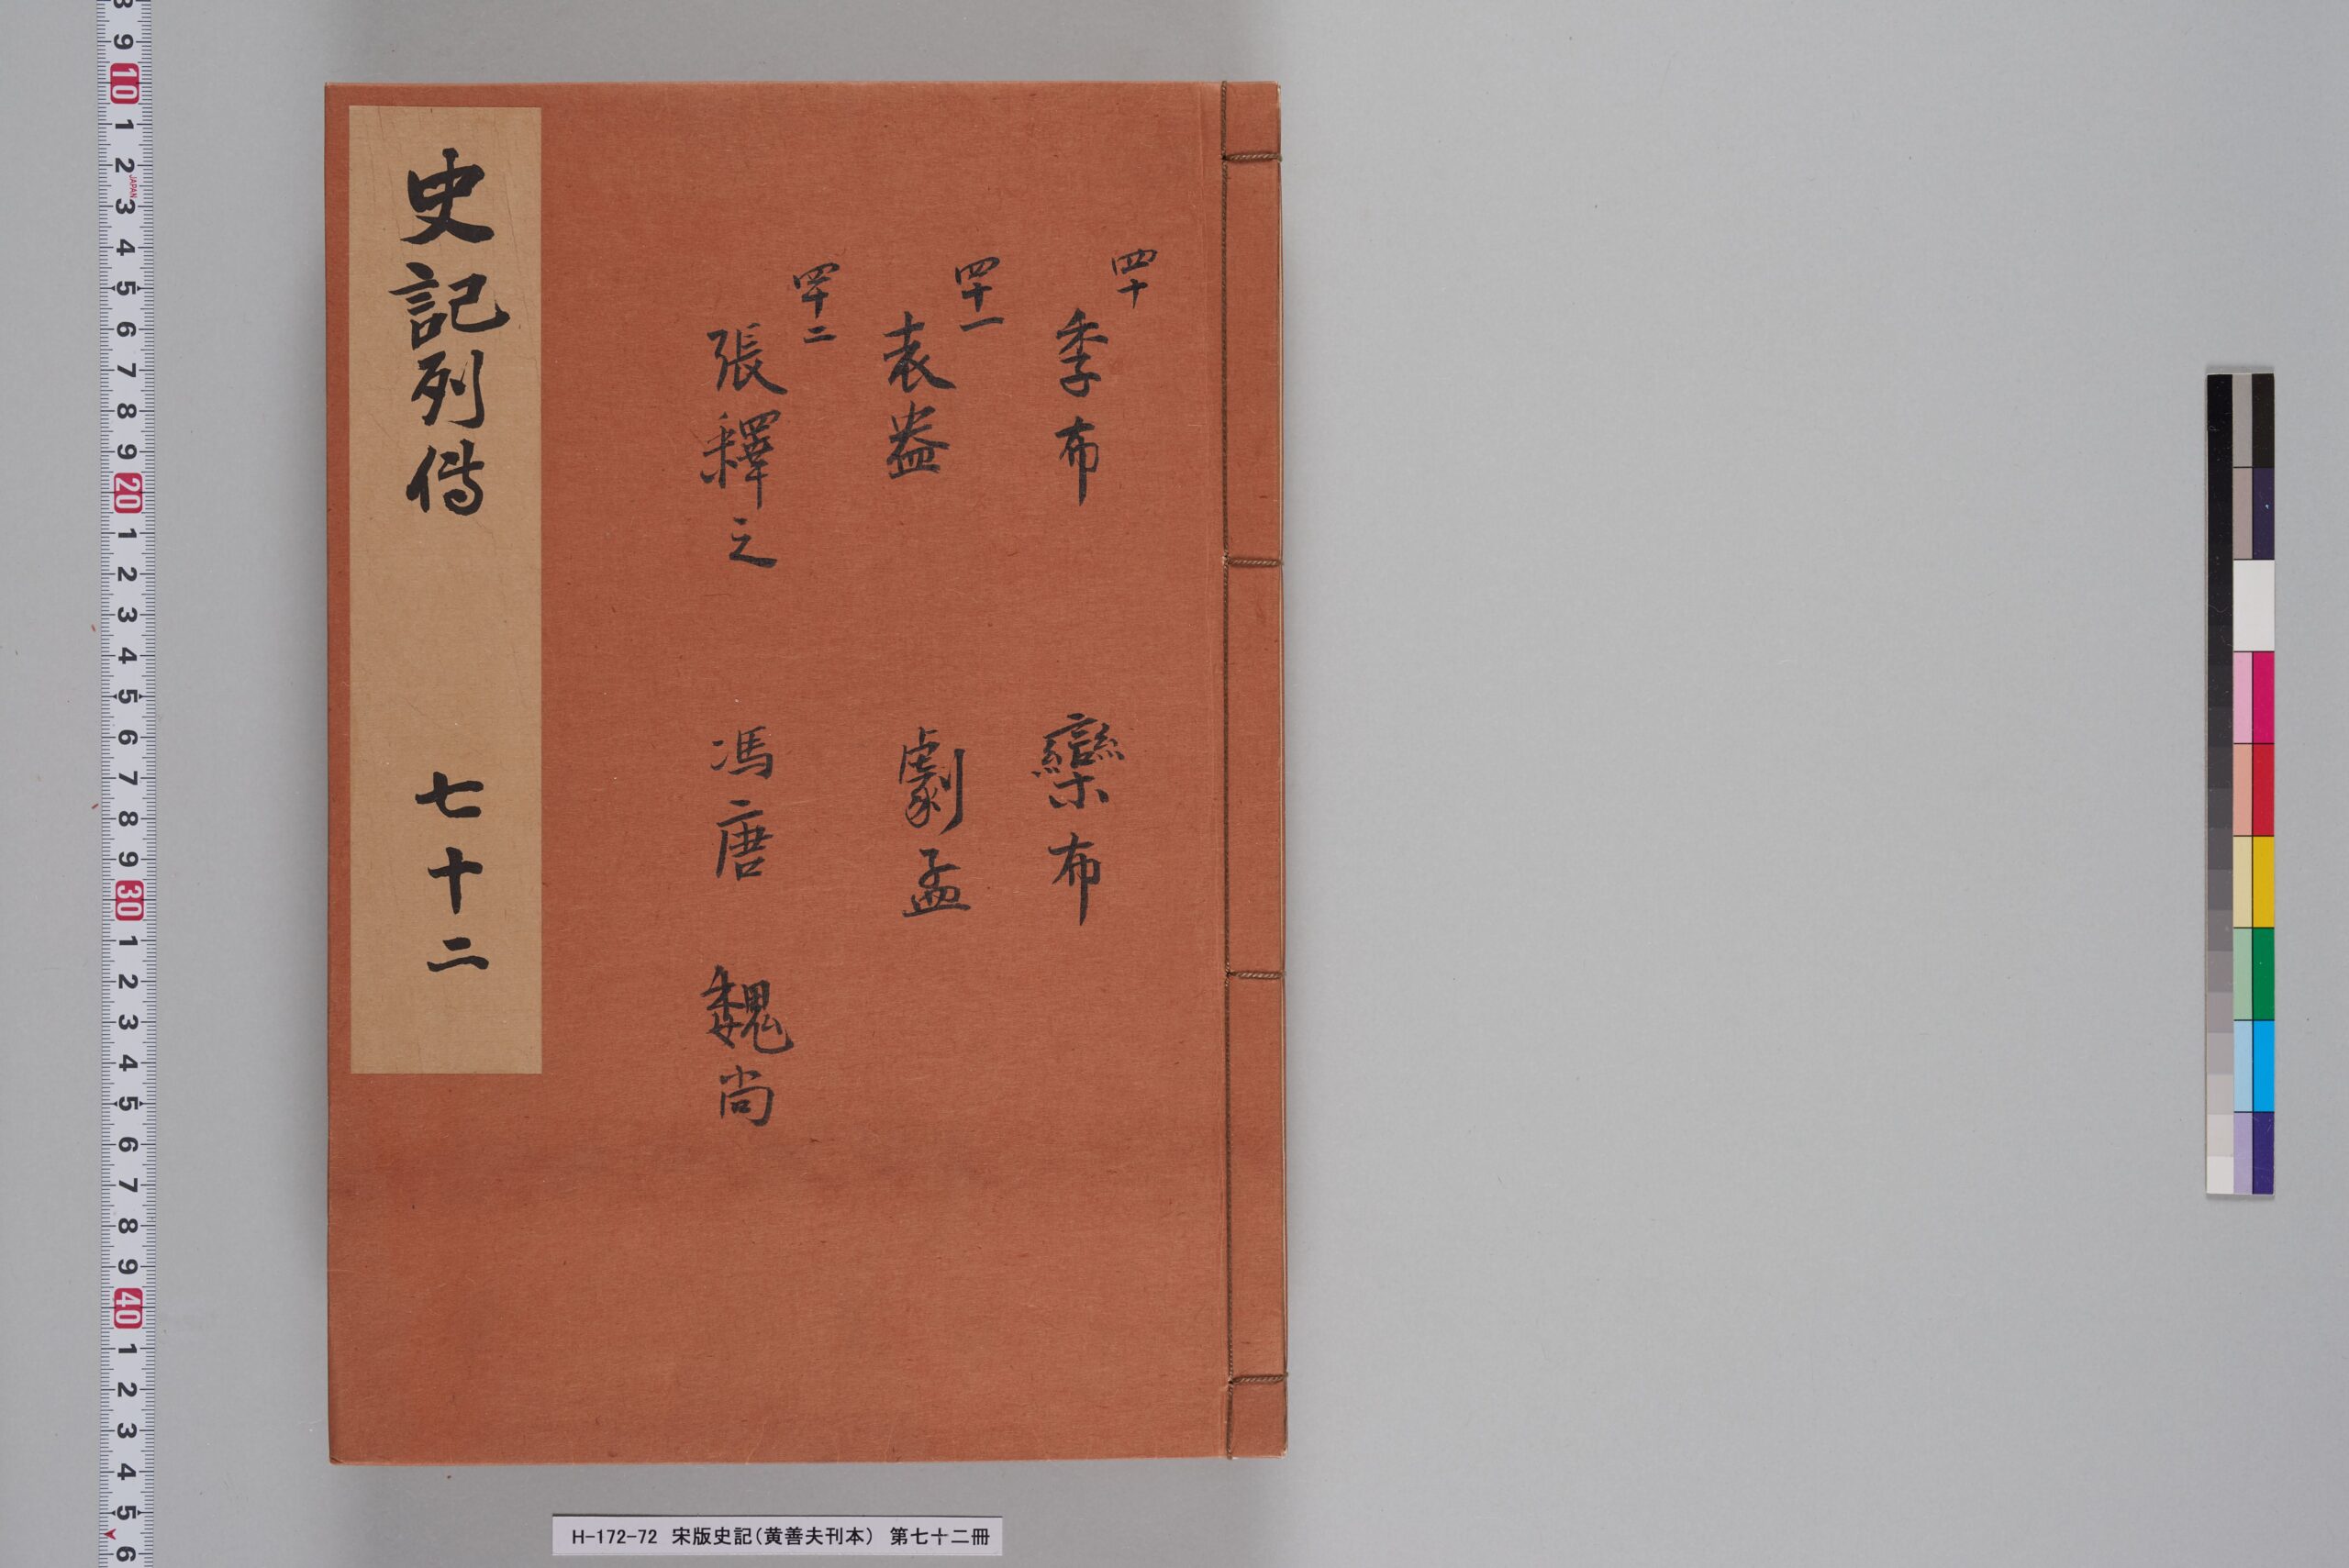 四十
季布 欒布
四十一
袁盎 劇孟
四十二
張釋之 馮唐 魏尚
史記列傳 七十二
H-172-72 宋版史記（黄善夫刊本） 第七十二冊
8 9 10 1 2 3 4 5 6 7 8 9 20 1 2 3 4 5 6 7 8 9 30 1 2 3 4 5 6 7 8 9 40 1 2 3 4 5 6
JAPAN